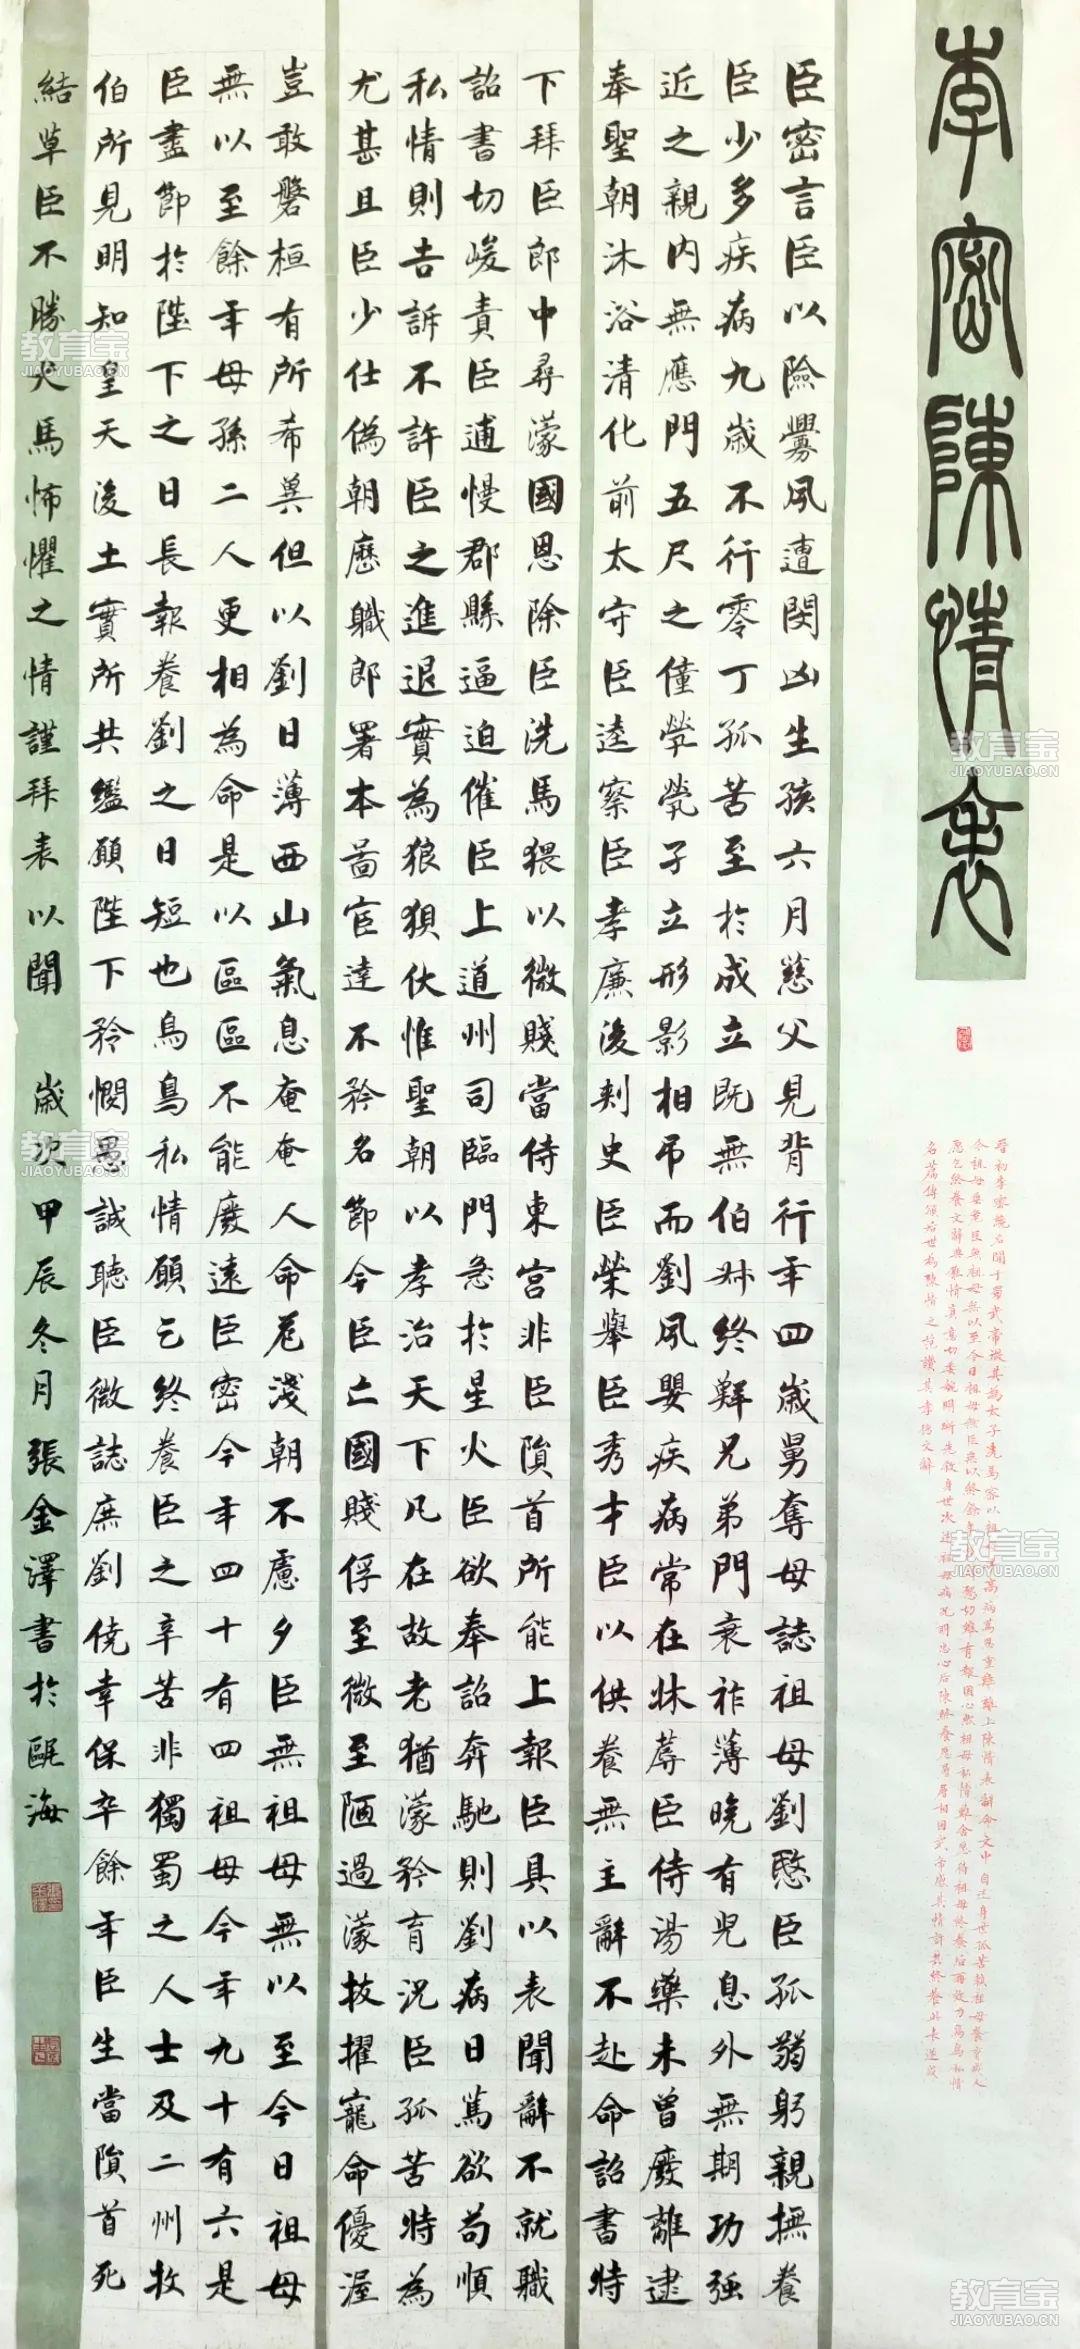 李密陳情表
臣密言臣以險釁夙遭閔凶生孩六月慈父見背行年四歲舅奪母誌祖母劉愍臣孤弱躬親撫養
臣少多疾病九歲不行零丁孤苦至於成立既無伯叔終鮮兄弟門衰祚薄晚有兒息外無期功強
近之親內無應門五尺之僮煢煢孑立形影相吊而劉夙嬰疾病常在牀蓐臣侍湯藥未曾廢離逮
奉聖朝沐浴清化前太守臣逵察臣孝廉後刺史臣榮舉臣秀才臣以供養無主辭不赴命詔書特
下拜臣郎中尋濛國恩除臣洗馬猥以微賤當侍東宮非臣隕首所能上報臣具以表聞辭不就職
詔書切峻責臣逋慢郡縣逼迫催臣上道州司臨門急於星火臣欲奉詔奔馳則劉病日篤欲苟順
私情則告訴不許臣之進退實為狼狽伏惟聖朝以孝治天下凡在故老猶濛矜育況臣孤苦特為
尤甚且臣少仕偽朝歷職郎署本啚宦達不矜名節今臣亡國賤俘至微至陋過濛拔擢寵命優渥
豈敢磐桓有所希冀但以劉日薄西山氣息奄奄人命危淺朝不慮夕臣無祖母無以至今日祖母
無以至餘年母孫二人更相為命是以區區不能廢遠臣密今年四十有四祖母今年九十有六是
臣盡節於陛下之日長報養劉之日短也烏鳥私情願乞終養臣之辛苦非獨蜀之人士及二州牧
伯所見明知皇天後土實所共鑑願陛下矜憫愚誠聽臣微誌庶劉僥幸保卒餘年臣生當隕首死
結草臣不勝犬馬怖懼之情謹拜表以聞 歲次甲辰冬月張金澤書於甌海
教育宝
JIAOYUBAO.CN
教育宝
JIAOYUBAO.CN
教育宝
JIAOYUBAO.CN
教育宝
JIAOYUBAO.CN
教育宝
JIAOYUBAO.CN